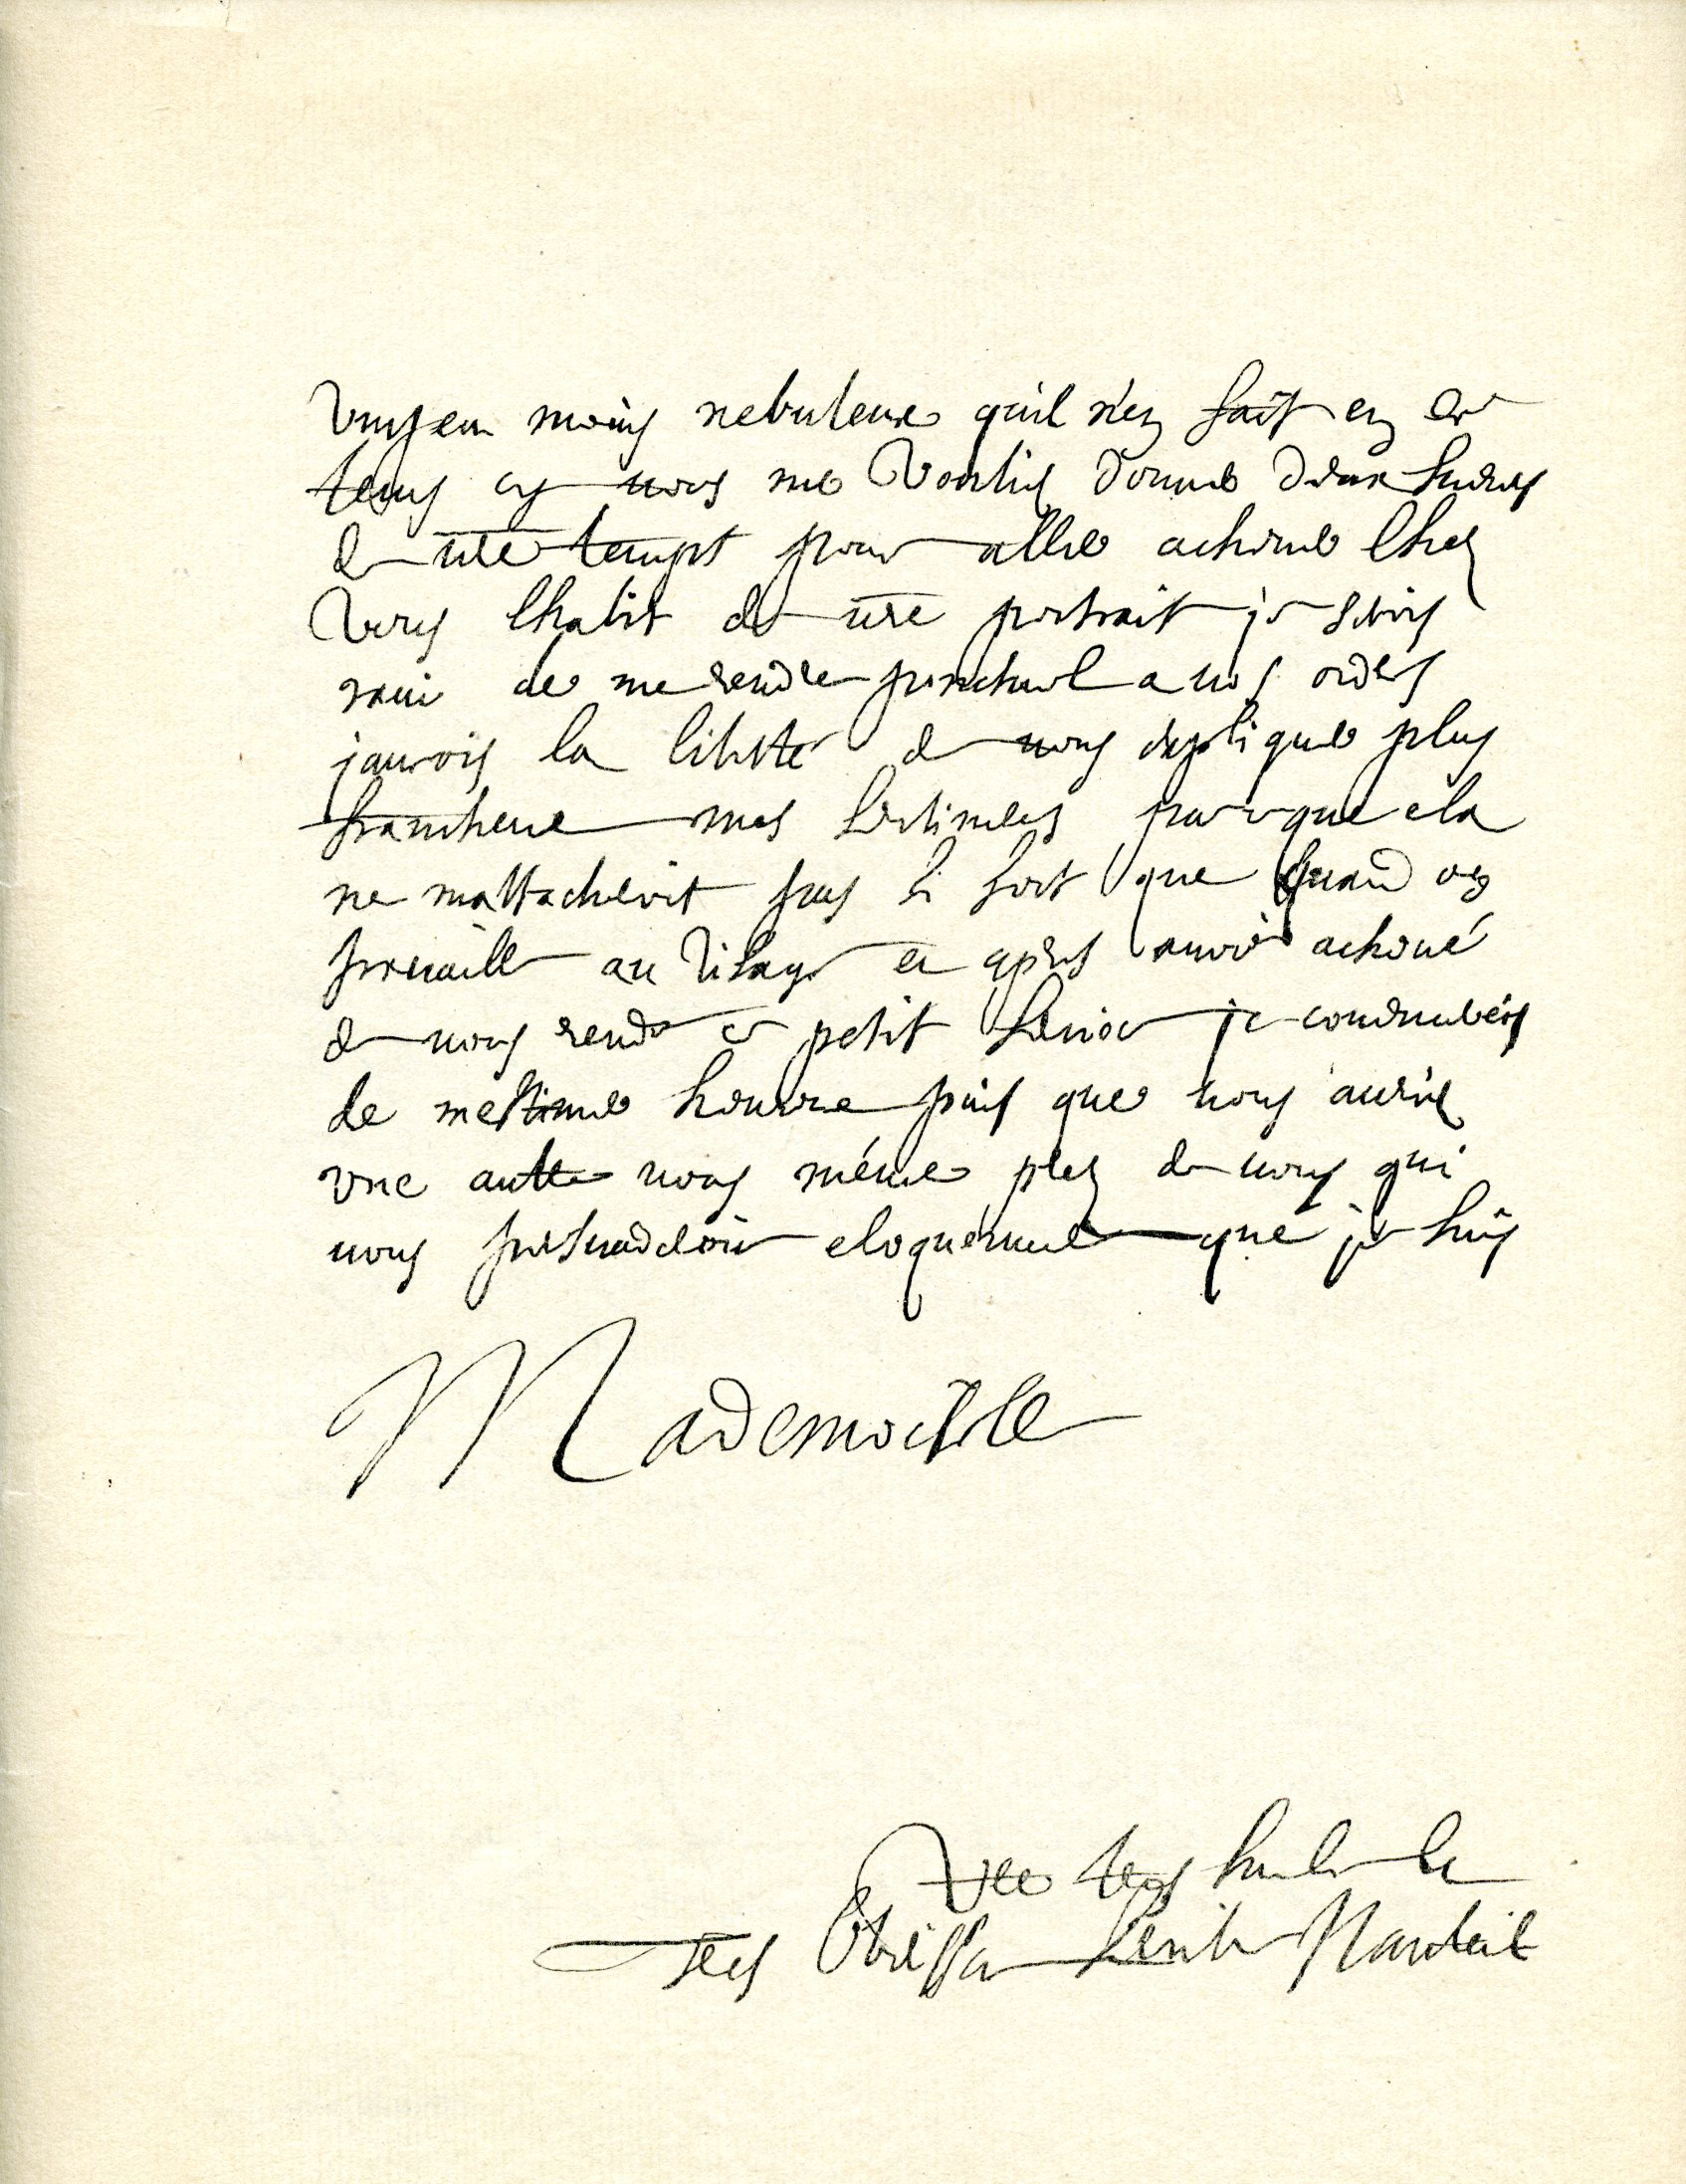 vng peu moins nebuleux quil n'en fait en ce
temps cy vous me vouliés donner deux heures
de vre temps pour aller achever chez
vous lhabit de vre portrait je serois
ravi de me rendre ponctuel a vos ordres
jaurois la liberté de vous expliquer plus
franchem mes sentimens parceque cela
ne mattacheroit pas si fort que quand on
travaille au visage et apres avoir achevé
de vous rendre ce petit service je
de mestimer heureux puis que vous auriés
une autre vous même prez de vous qui
vous persuaderoit eloquemmet que je suis
Mademoiselle
Vre tres humble
tres Obeissa servite Nanteüil